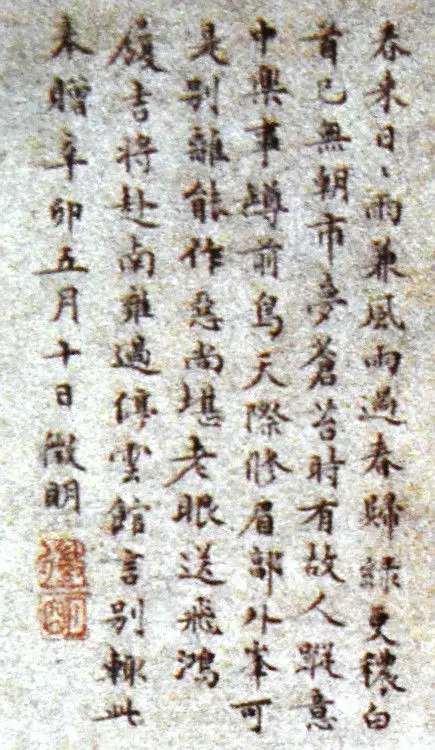 春来日〻雨兼風雨過春歸綠更穠白
首已無朝市夢蒼苔時有故人蹤意
中樂事罇前鳥天際脩眉郭外峯可
是別離能作惡尚堪老眼送飛鴻
履吉將赴南雍過停雲館言別輒此
奉贈辛卯五月十日徵明
徵明